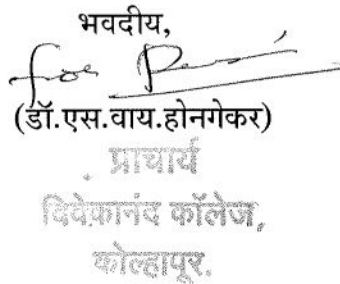 भवदीय,
for
(डॉ.एस.वाय.होनगेकर)
प्राचार्य
विवेकानंद कॉलेज,
कोल्हापूर.